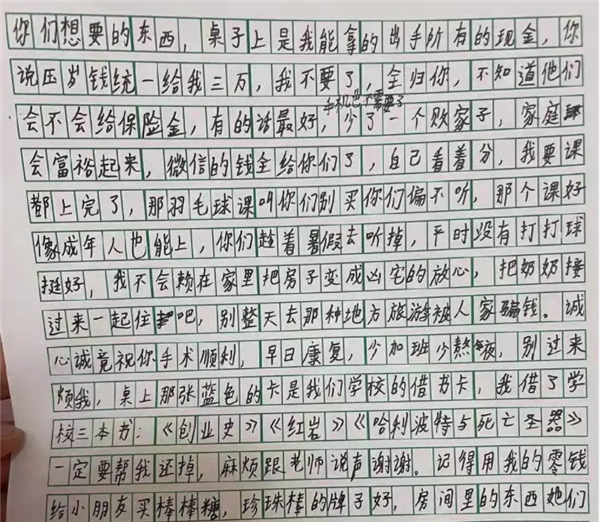 你们想要的东西，桌子上是我能拿的出手所有的现金，你
说压岁钱统一给我三万，我不要了，全归你，不知道他们
手机也不需要了
会不会给保险金，有的话最好，少了一个败家子，家庭
会富裕起来，微信的钱全给你们了，自己看着分，我要课
都上完了，那羽毛球课听你们别买你们偏不听，那个课好
像成年人也能上，你们趁着暑假去听掉，平时没有打打球
挺好，我不会赖在家里把房子变成凶宅的放心，把奶奶接
过来一起住吧，别整天去那种地方旅游被人家骗钱。诚
心诚竟祝你手术顺利，早日康复，少加班少熬夜，别过来
烦我，桌上那张蓝色的卡是我们学校的借书卡，我借了学
校三本书：《创业史》《红岩》《哈利波特与死亡圣器》
一定要帮我还掉，麻烦跟老师说声谢谢。记得用我的零钱
给小朋友买棒棒糖，珍珠棒的牌子好，房间里的东西她们